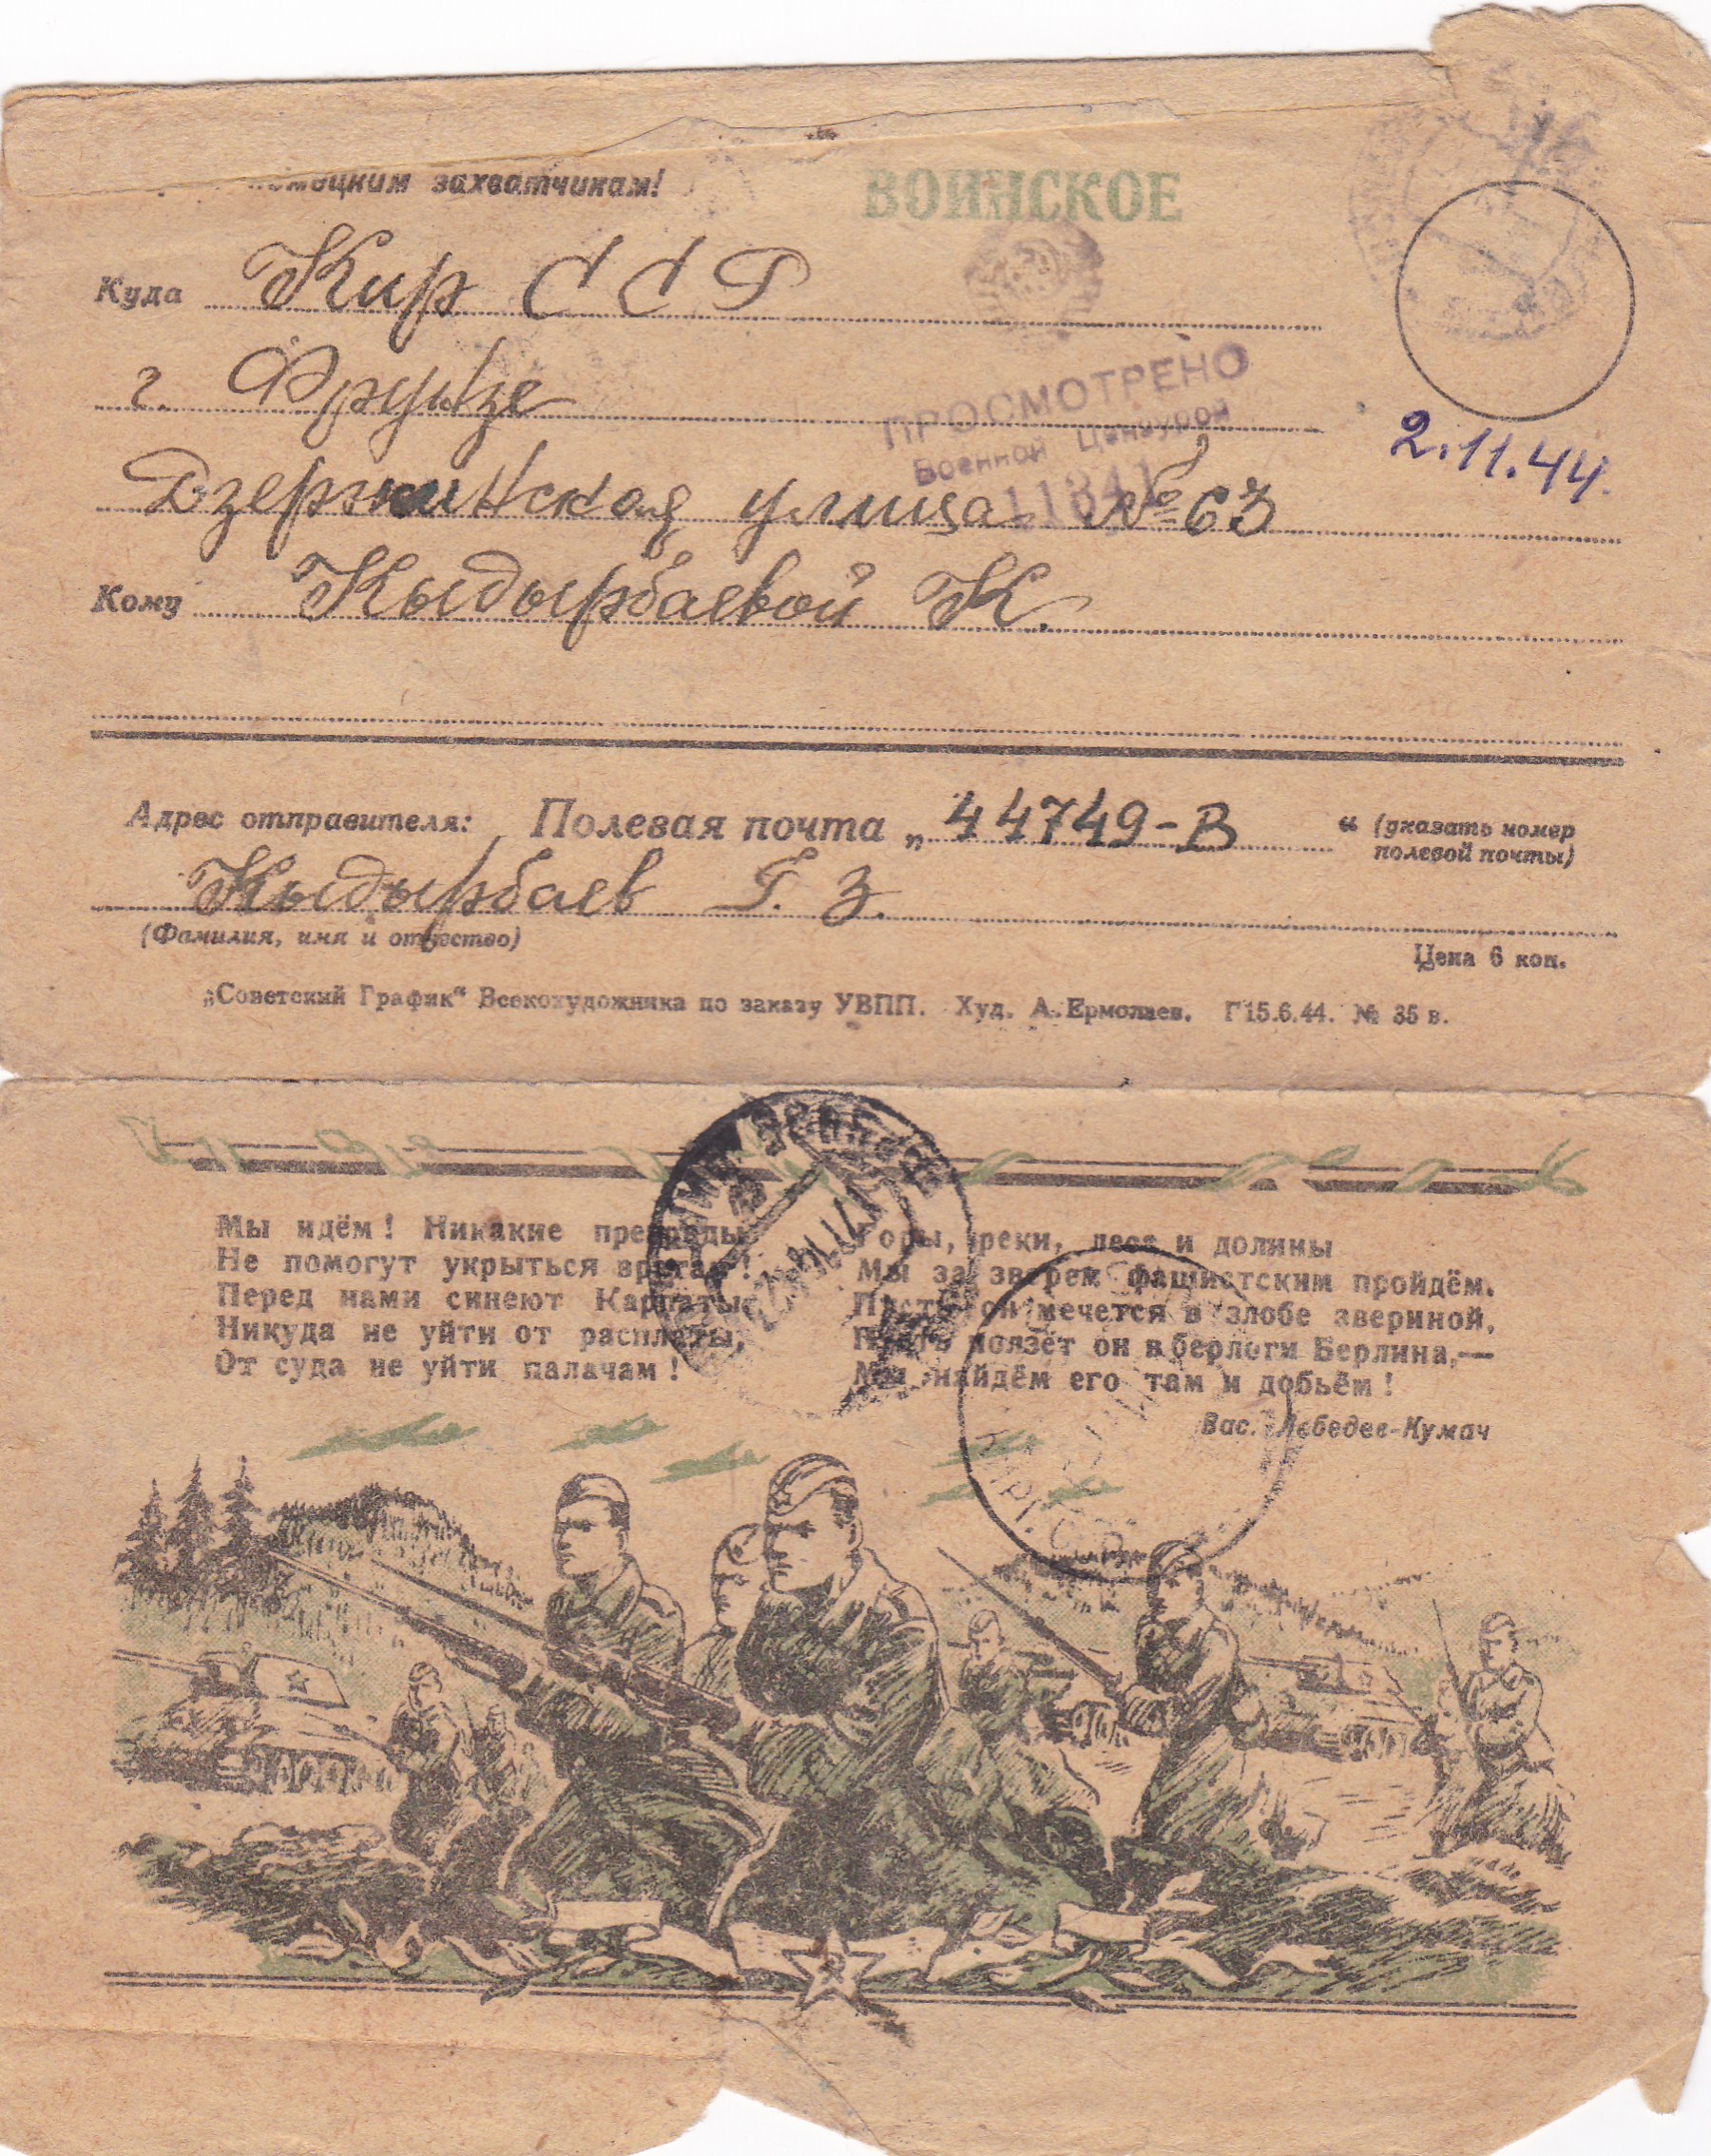 немецким захватчикам!
ВОИНСКОЕ
Куда Кир ССР
г. Фрунзе
ПРОСМОТРЕНО
Военной Цензурой
2.11.44.
Дзержинская улица №63
Кому Кыдырбаевой К.
Адрес отправителя: Полевая почта „44749-В“ (указать номер
полевой почты)
Кыдырбаев Г. З.
(Фамилия, имя и отчество)
Цена 6 коп.
„Советский График“ Всекохудожника по заказу УВПП. Худ. А. Ермолаев. Г15.6.44. № 35 в.
Мы идём! Никакие преграды
Не помогут укрыться врагам!
Перед нами синеют Карпаты
Никуда не уйти от расплаты,
От суда не уйти палачам!
Горы, реки, леса и долины
Мы за зверем фашистским пройдём.
Пусть он мечется в злобе звериной,
Пусть ползёт он в берлоги Берлина,—
Мы найдём его там и добьём!
Вас. Лебедев-Кумач